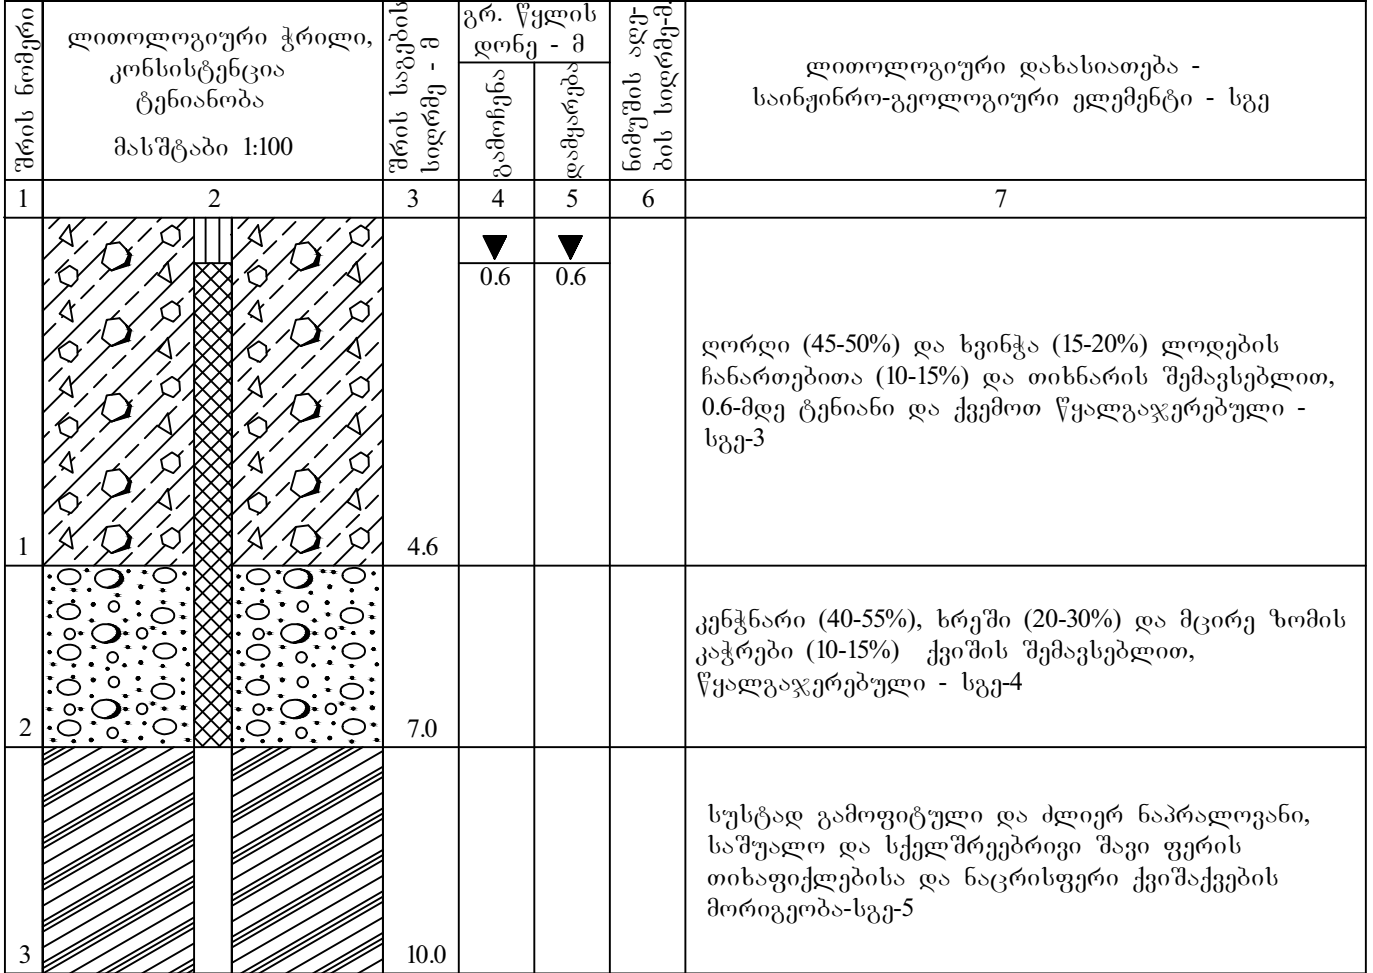 შრის ნომერი
ლითოლოგიური ჭრილი,
კონსისტენცია
ტენიანობა
მასშტაბი 1:100
შრის საგების
სიღრმე - მ
გრ. წყლის
დონე - მ
გამოჩენა
დამყარება
ნიმუშის აღე-
ბის სიღრმე-მ.
ლითოლოგიური დახასიათება -
საინჟინრო-გეოლოგიური ელემენტი - სგე
1 2 3 4 5 6 7
0.6 0.6
ღორღი (45-50%) და ხვინჭა (15-20%) ლოდების
ჩანართებითა (10-15%) და თიხნარის შემავსებლით,
0.6-მდე ტენიანი და ქვემოთ წყალგაჯერებული -
სგე-3
1 4.6
კენჭნარი (40-55%), ხრეში (20-30%) და მცირე ზომის
კაჭრები (10-15%) ქვიშის შემავსებლით,
წყალგაჯერებული - სგე-4
2 7.0
სუსტად გამოფიტული და ძლიერ ნაპრალოვანი,
საშუალო და სქელშრეებრივი შავი ფერის
თიხაფიქლებისა და ნაცრისფერი ქვიშაქვების
მორიგეობა-სგე-5
3 10.0